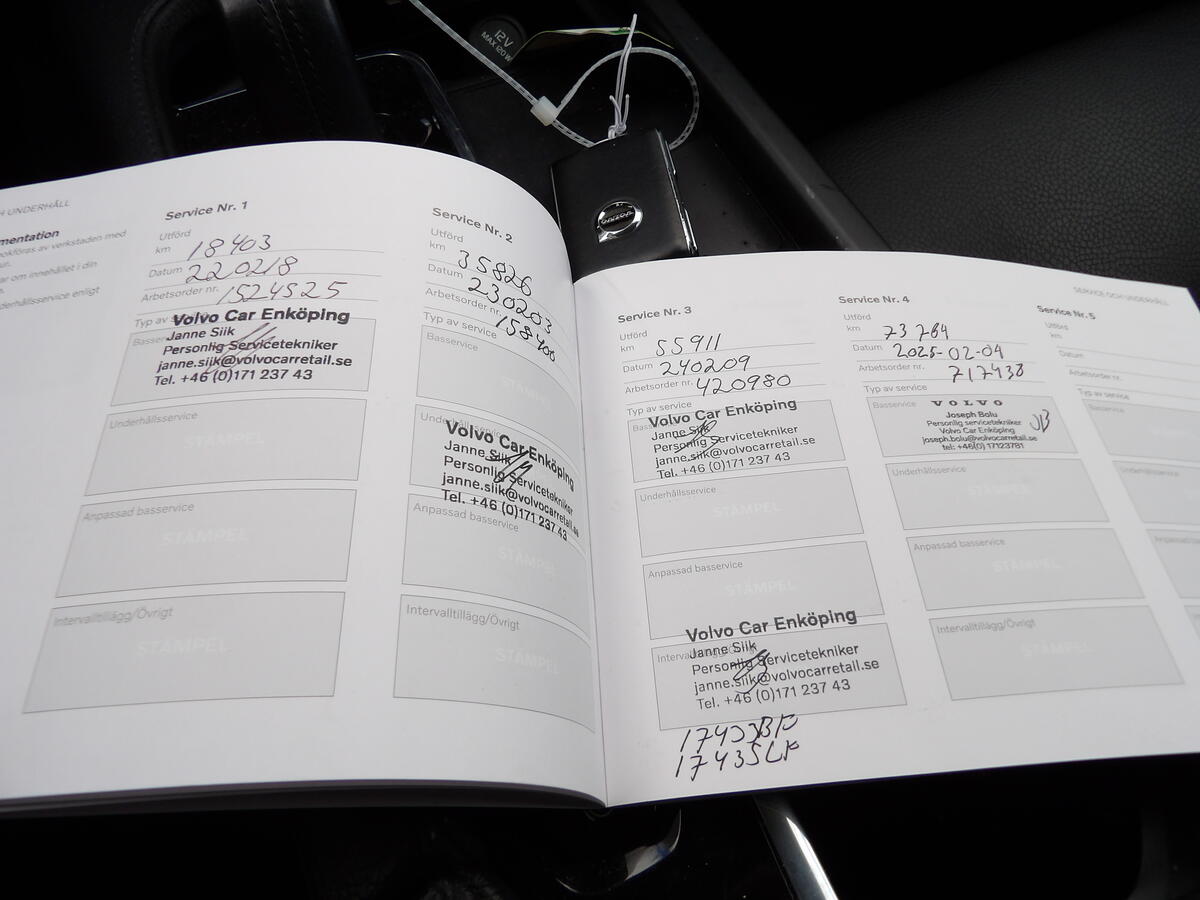 12V
MAX 120 W
VOLVO
H UNDERHÅLL
mentation
okföras av verkstaden med
ar om innehållet i din
derhållsservice enligt
Service Nr. 1
Utförd
km 18403
Datum 220218
Arbetsorder nr. 1524525
Typ av
Volvo Car Enköping
Janne Siik
Personlig Servicetekniker
janne.siik@volvocarretail.se
Tel. +46 (0)171 237 43
Underhållsservice
STÄMPEL
Anpassad basservice
STÄMPEL
Intervalltillägg/Övrigt
STÄMPEL
Service Nr. 2
Utförd
km 35826
Datum 230203
Arbetsorder nr.
Typ av service
Basservice
STÄMPEL
Volvo Car Enköping
Janne Siik
Personlig Servicetekniker
janne.siik@volvocarretail.se
Tel. +46 (0)171 237 43
Anpassad basservice
STÄMPEL
Intervalltillägg/Övrigt
STÄMPEL
SERVICE OCH UNDERHÅLL
Service Nr. 3
Utförd
km 55911
Datum 240209
Arbetsorder nr. 420980
Typ av service
Volvo Car Enköping
Janne Siik
Personlig Servicetekniker
janne.siik@volvocarretail.se
Tel. +46 (0)171 237 43
Underhållsservice
STÄMPEL
Anpassad basservice
STÄMPEL
Volvo Car Enköping
Janne Siik
Personlig Servicetekniker
janne.siik@volvocarretail.se
Tel. +46 (0)171 237 43
Service Nr. 4
Utförd
km 73764
Datum 2025-02-04
Arbetsorder nr. 717438
Typ av service
Basservice
VOLVO
Joseph Bolu
Personlig servicetekniker
Volvo Car Enköping
joseph.bolu@volvocarretail.se
tel: +46(0) 17123781
JB
Underhållsservice
STÄMPEL
Anpassad basservice
STÄMPEL
Intervalltillägg/Övrigt
STÄMPEL
Service Nr. 5
Utförd
km
Datum
Arbetsorder nr.
Typ av service
Basservice
Underhållsservice
Anpassad